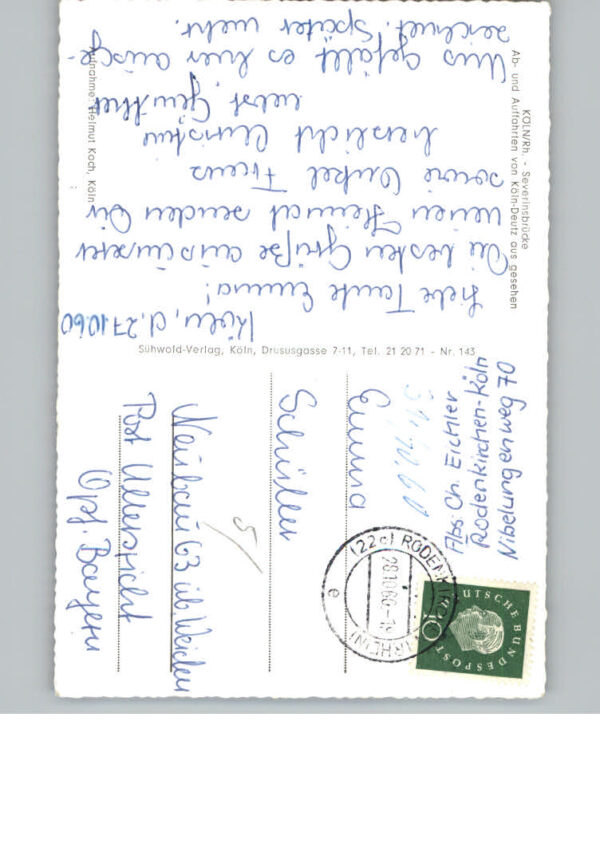 KÖLN/Rh. - Severinsbrücke
Ab- und Auffahrten von Köln-Deutz aus gesehen
Köln, d. 27.10.60
Liebe Tante Emma!
Die besten Grüße aus unserer
neuen Heimat senden Dir
sowie Onkel Franz
herzlichst Christine
nebst Günther
Uns gefällt es hier ausge-
zeichnet. Später mehr.
Aufnahme: Helmut Koch, Köln
Sühwold-Verlag, Köln, Drususgasse 7-11, Tel. 21 20 71 - Nr. 143
Abs. Ch. Eichler
Rodenkirchen-Köln
Nibelungenweg 70
31.10.60
DEUTSCHE BUNDESPOST
10
(22c) RODENKIRCHEN
(RHEIN)
28.10.60
e
Emma
Schüller
Neubau 63 üb Weiden
Post Ullersricht
Opf. Bayern
5